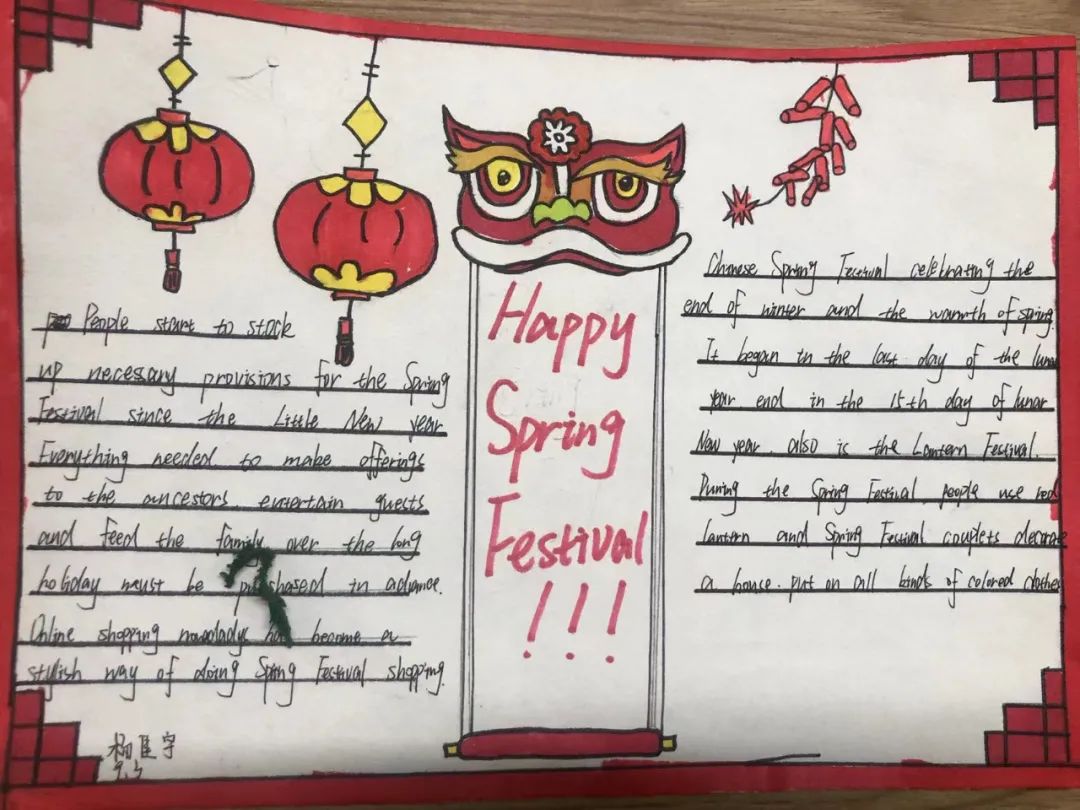 People start to stock
up necessary provisions for the Spring
Festival since the Little New year
Everything needed to make offerings
to the ancestors. entertain guests
and feed the family over the long
holiday must be purchased in advance.
Online shopping nowadady has become a
stylish way of doing Spring Festival shopping.
Happy
Spring
Festival
!!!
Chinese Spring Festival celebrating the
end of winter and the warmth of spring.
It began in the last day of the lunar
year end in the 15th day of lunar
New year. also is the Lantern Festival.
During the Spring Festival. people use red
lantern and Spring Festival couplets decorate
a house. put on all kinds of colored clothes